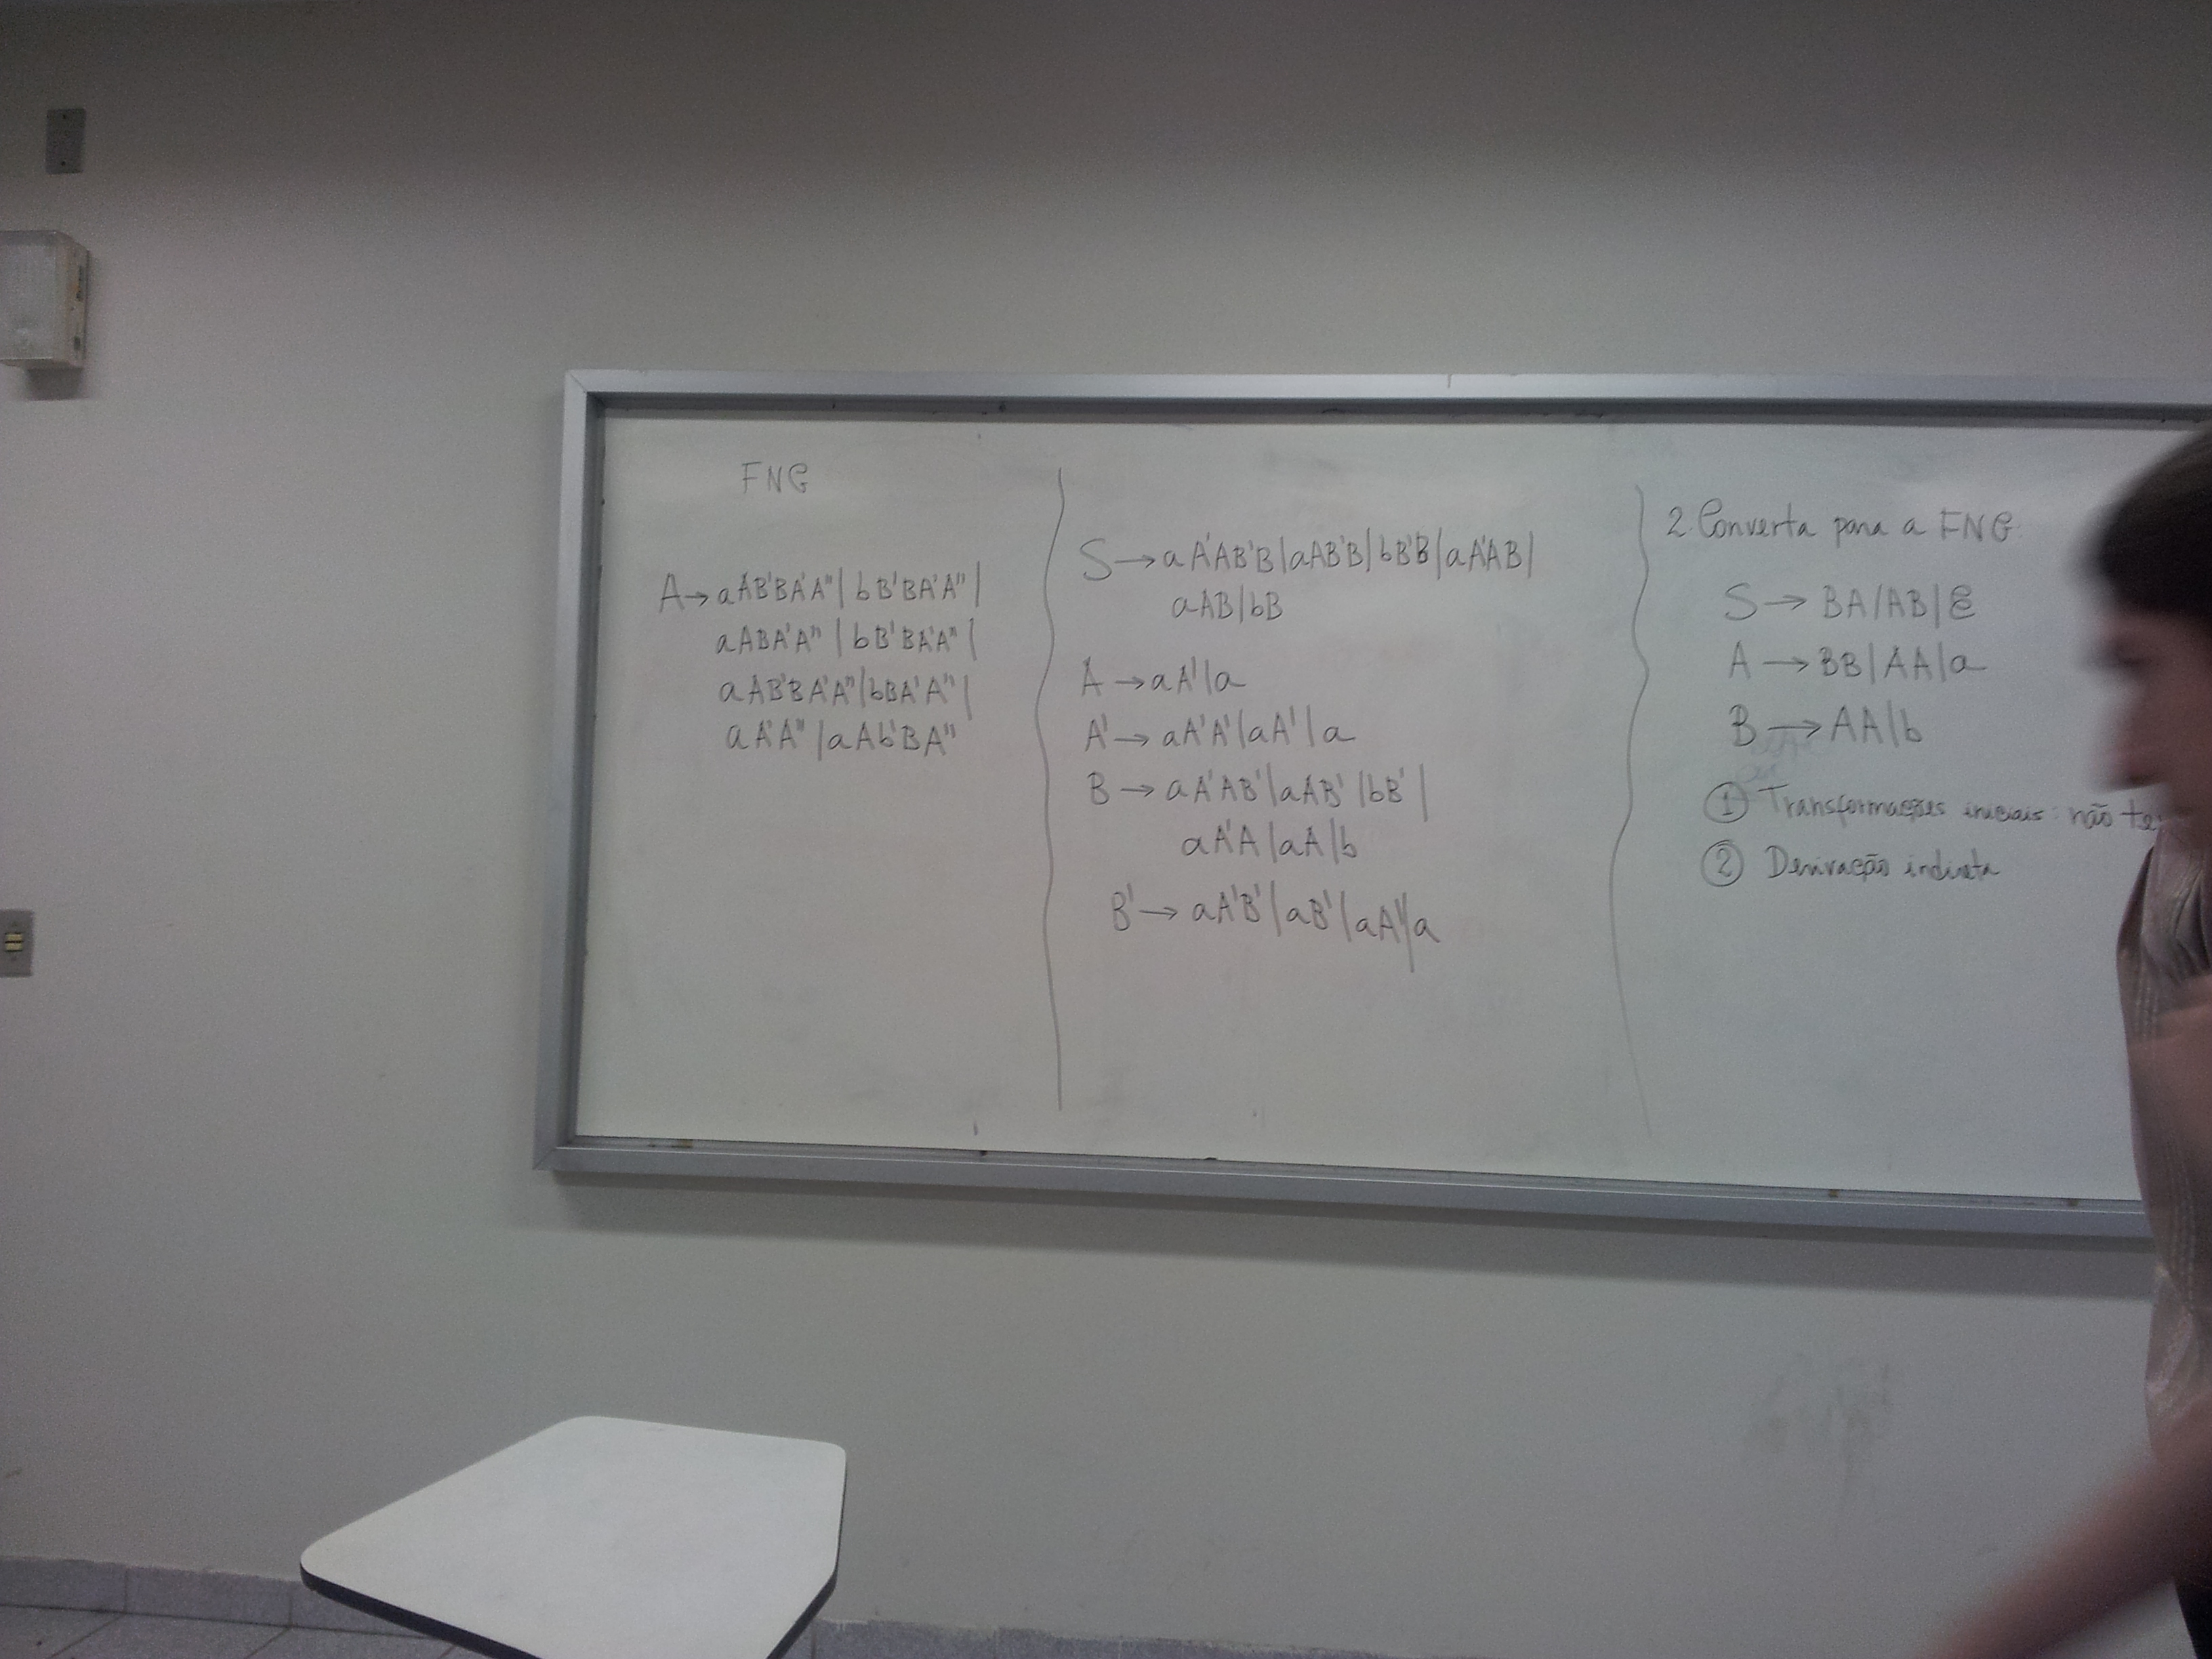 FNG
A→aAB'BA'A"|bB'BA'A"|
aABA'A"|bB'BA'A"|
aAB'BA'A"|bBA'A"|
aA'A"|aAb'BA"
S→aA'AB'B|aAB'B|bB'B|aA'AB|
aAB|bB
A→aA'|a
A'→aA'A'|aA'|a
B→aA'AB'|aAB'|bB'|
aA'A|aA|b
B'→aA'B'|aB'|aA'|a
2. Converta para a FNG
S→BA|AB|ε
A→BB|AA|a
B→AA|b
① Transformações iniciais: não
② Derivação indireta